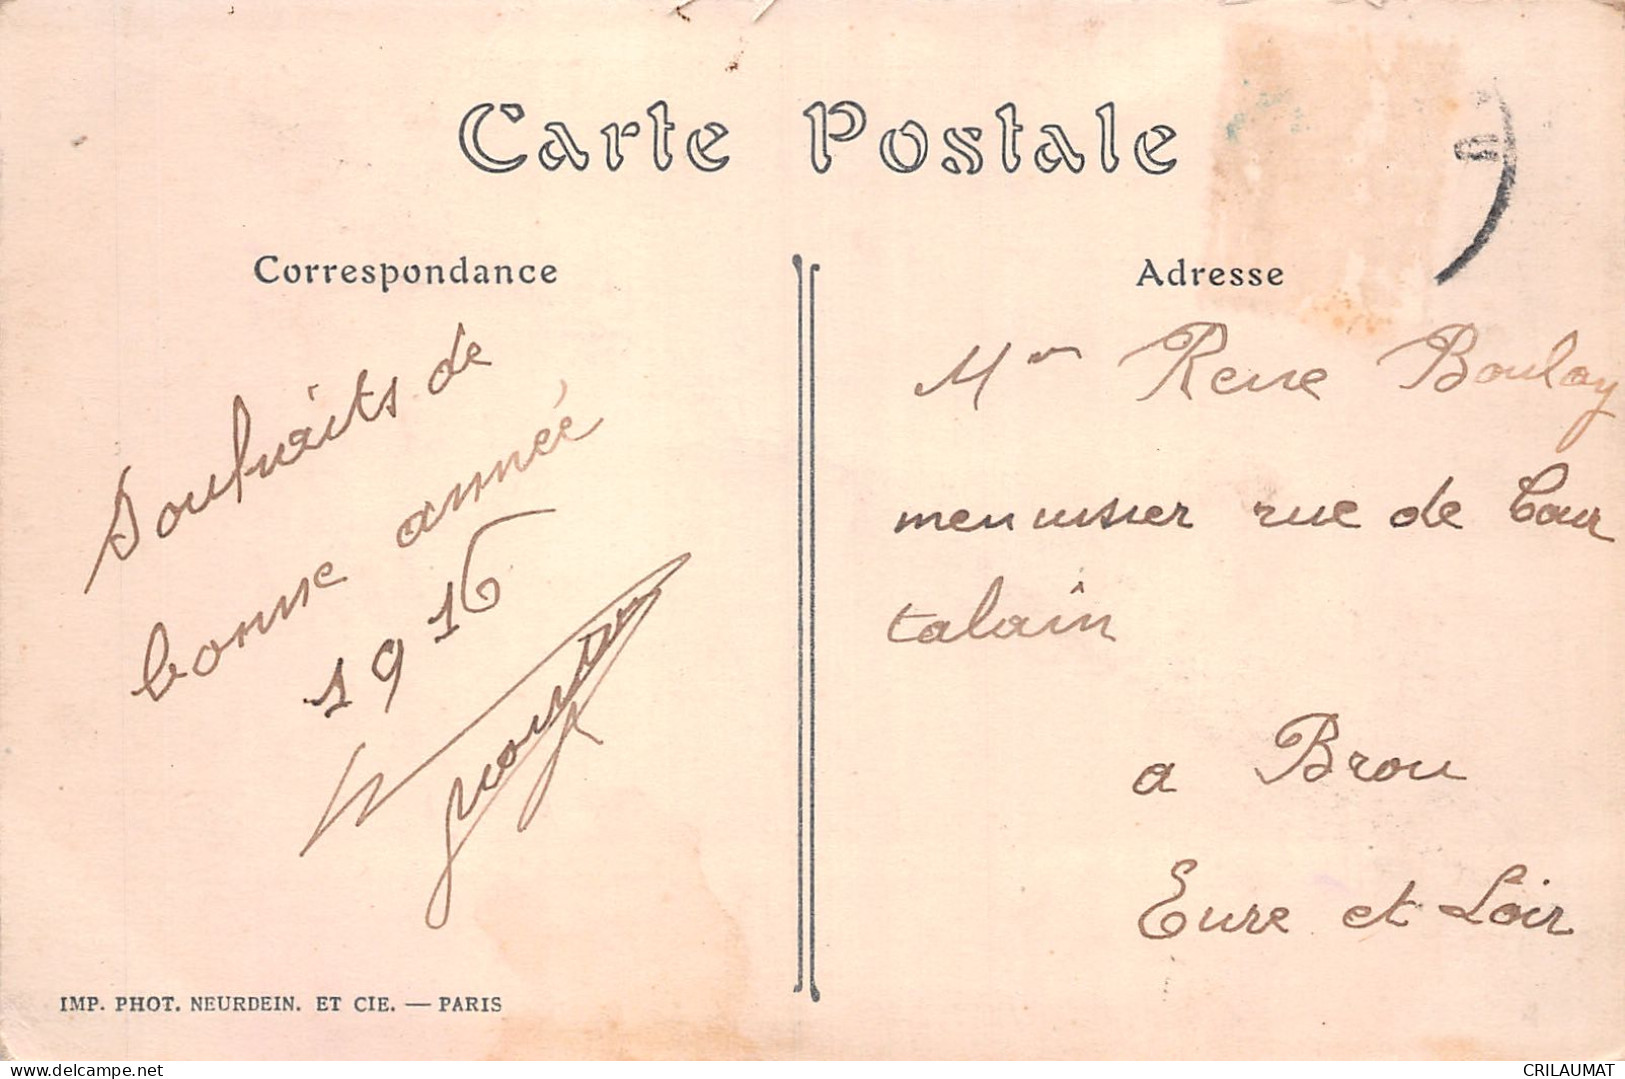 Carte Postale
Correspondance
Souhaits de
bonne année
1916
Adresse
Mr Rene Boulay
menuisier rue de Cour
talain
a Brou
Eure et Loir
IMP. PHOT. NEURDEIN. ET CIE. — PARIS
delcampe.net
CRILAUMAT